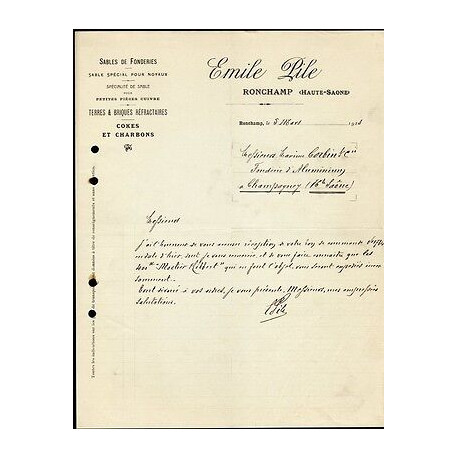 SABLES DE FONDERIES
SABLE SPÉCIAL POUR NOYAUX
SPÉCIALITÉ DE SABLE
POUR
PETITES PIÈCES CUIVRE
TERRES & BRIQUES RÉFRACTAIRES
COKES
ET CHARBONS
Emile Pile
RONCHAMP (HAUTE-SAONE)
Ronchamp, le 5 Mars 191
Messieurs Corbin & Cie
Fonderie d'Aluminium
à Champagney (Hte Saône)
Messieurs
J'ai l'honneur de vous accuser réception de votre bon de commande
en date d'hier, dont je vous remercie, et de vous faire connaître que les
qui en font l'objet, vous seront expédiés
Tout dévoué à vos ordres, je vous présente, Messieurs, mes empressées
salutations.
Pile